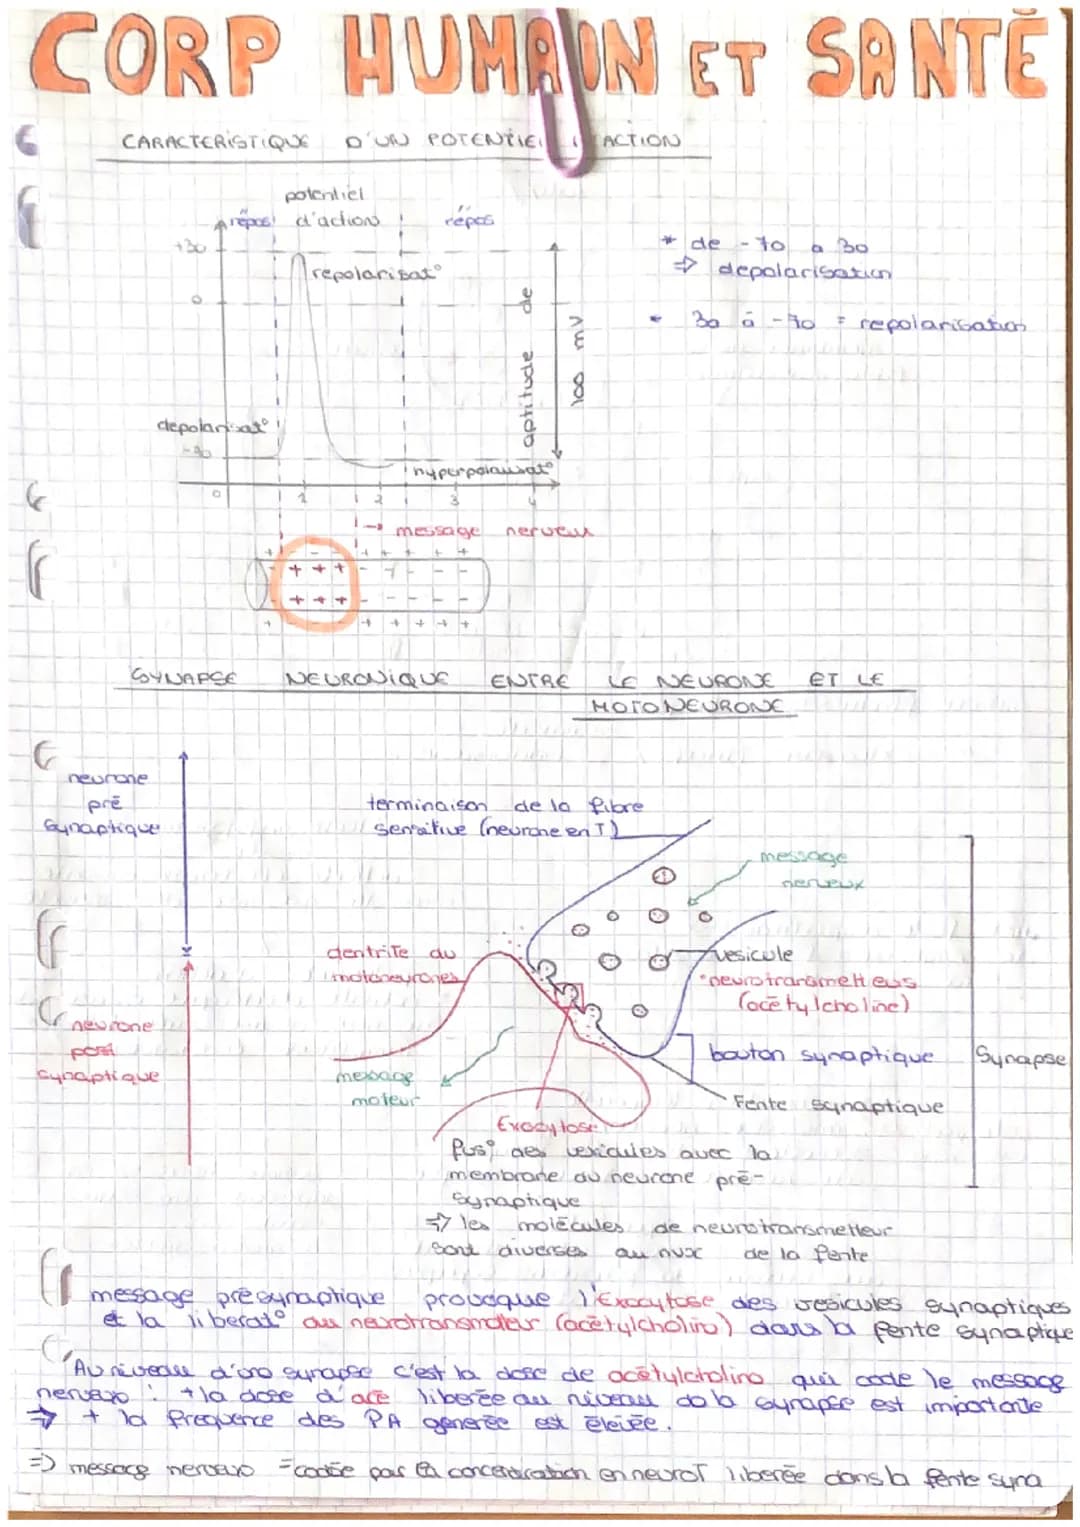 CORP HUMAIN ET SANTÉ
CARACTERISTIQUE D'UN POTENTIEL ACTION
potentiel
repos d'action repos
+30
repolarisat°
0
depolarisat°
-70
hyperpolarisat°
aptitude de
100 mV
0 1 2 3 4
* de -70 a 30
⇒ depolarisation
* 30 à -70 = repolarisation
→ message nerveux
+ + +
- - - -
+ + +
- - - - -
+ + + + +
SYNAPSE NEURONIQUE ENTRE LE NEURONE ET LE
MOTONEURONE
neurone
pré
synaptique
terminaison de la fibre
sensitive (neurone en T)
message
nerveux
dentrite du
motoneurones
vesicule
neurotransmetteurs
(acétylcholine)
neurone
post
synaptique
message
moteur
bouton synaptique
Synapse
Fente synaptique
Exocytose
fus° des vesicules avec la
membrane du neurone pré-
synaptique
⇒ les molécules de neurotransmetteur
sont diverses au nux de la fente
message présynaptique provoque l'Exocytose des vesicules synaptiques
et la liberat° du neurotransmetteur (acétylcholine) dans la fente synaptique
Au niveau d'une synapse c'est la dose de acétylcholine qui code le message
nerveux : + la dose d'ace libérée au niveau de la synapse est importante
⇒ + la frequence des PA generée est élevée.
⇒ message nerveux = codée par la concentration en neuroT liberée dans la fente syna